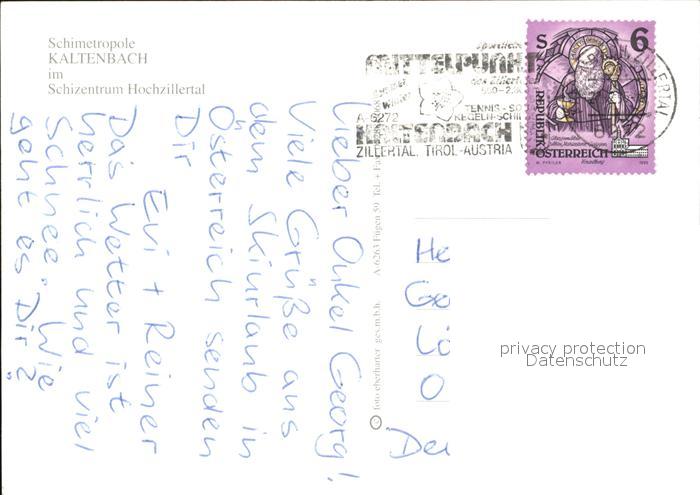 Schimetropole
KALTENBACH
im
Schizentrum Hochzillertal
Lieber Onkel Georg!
Viele Grüße aus
dem Skiurlaub in
Österreich senden
Dir
Evi + Reiner
Das Wetter ist
herrlich und viel
Schnee. Wie
geht es Dir?
MITTELPUNKT
A-6272
TENNIS-
KEGELN-SCHI
KALTENBACH
ZILLERTAL, TIROL-AUSTRIA
ZILLERTAL
S 6
REPUBLIK
ÖSTERREICH
© foto eberharter ges.m.b.h. A-6263 Fügen 59 Tel.
He
Ge
Lö
O
privacy protection
Datenschutz